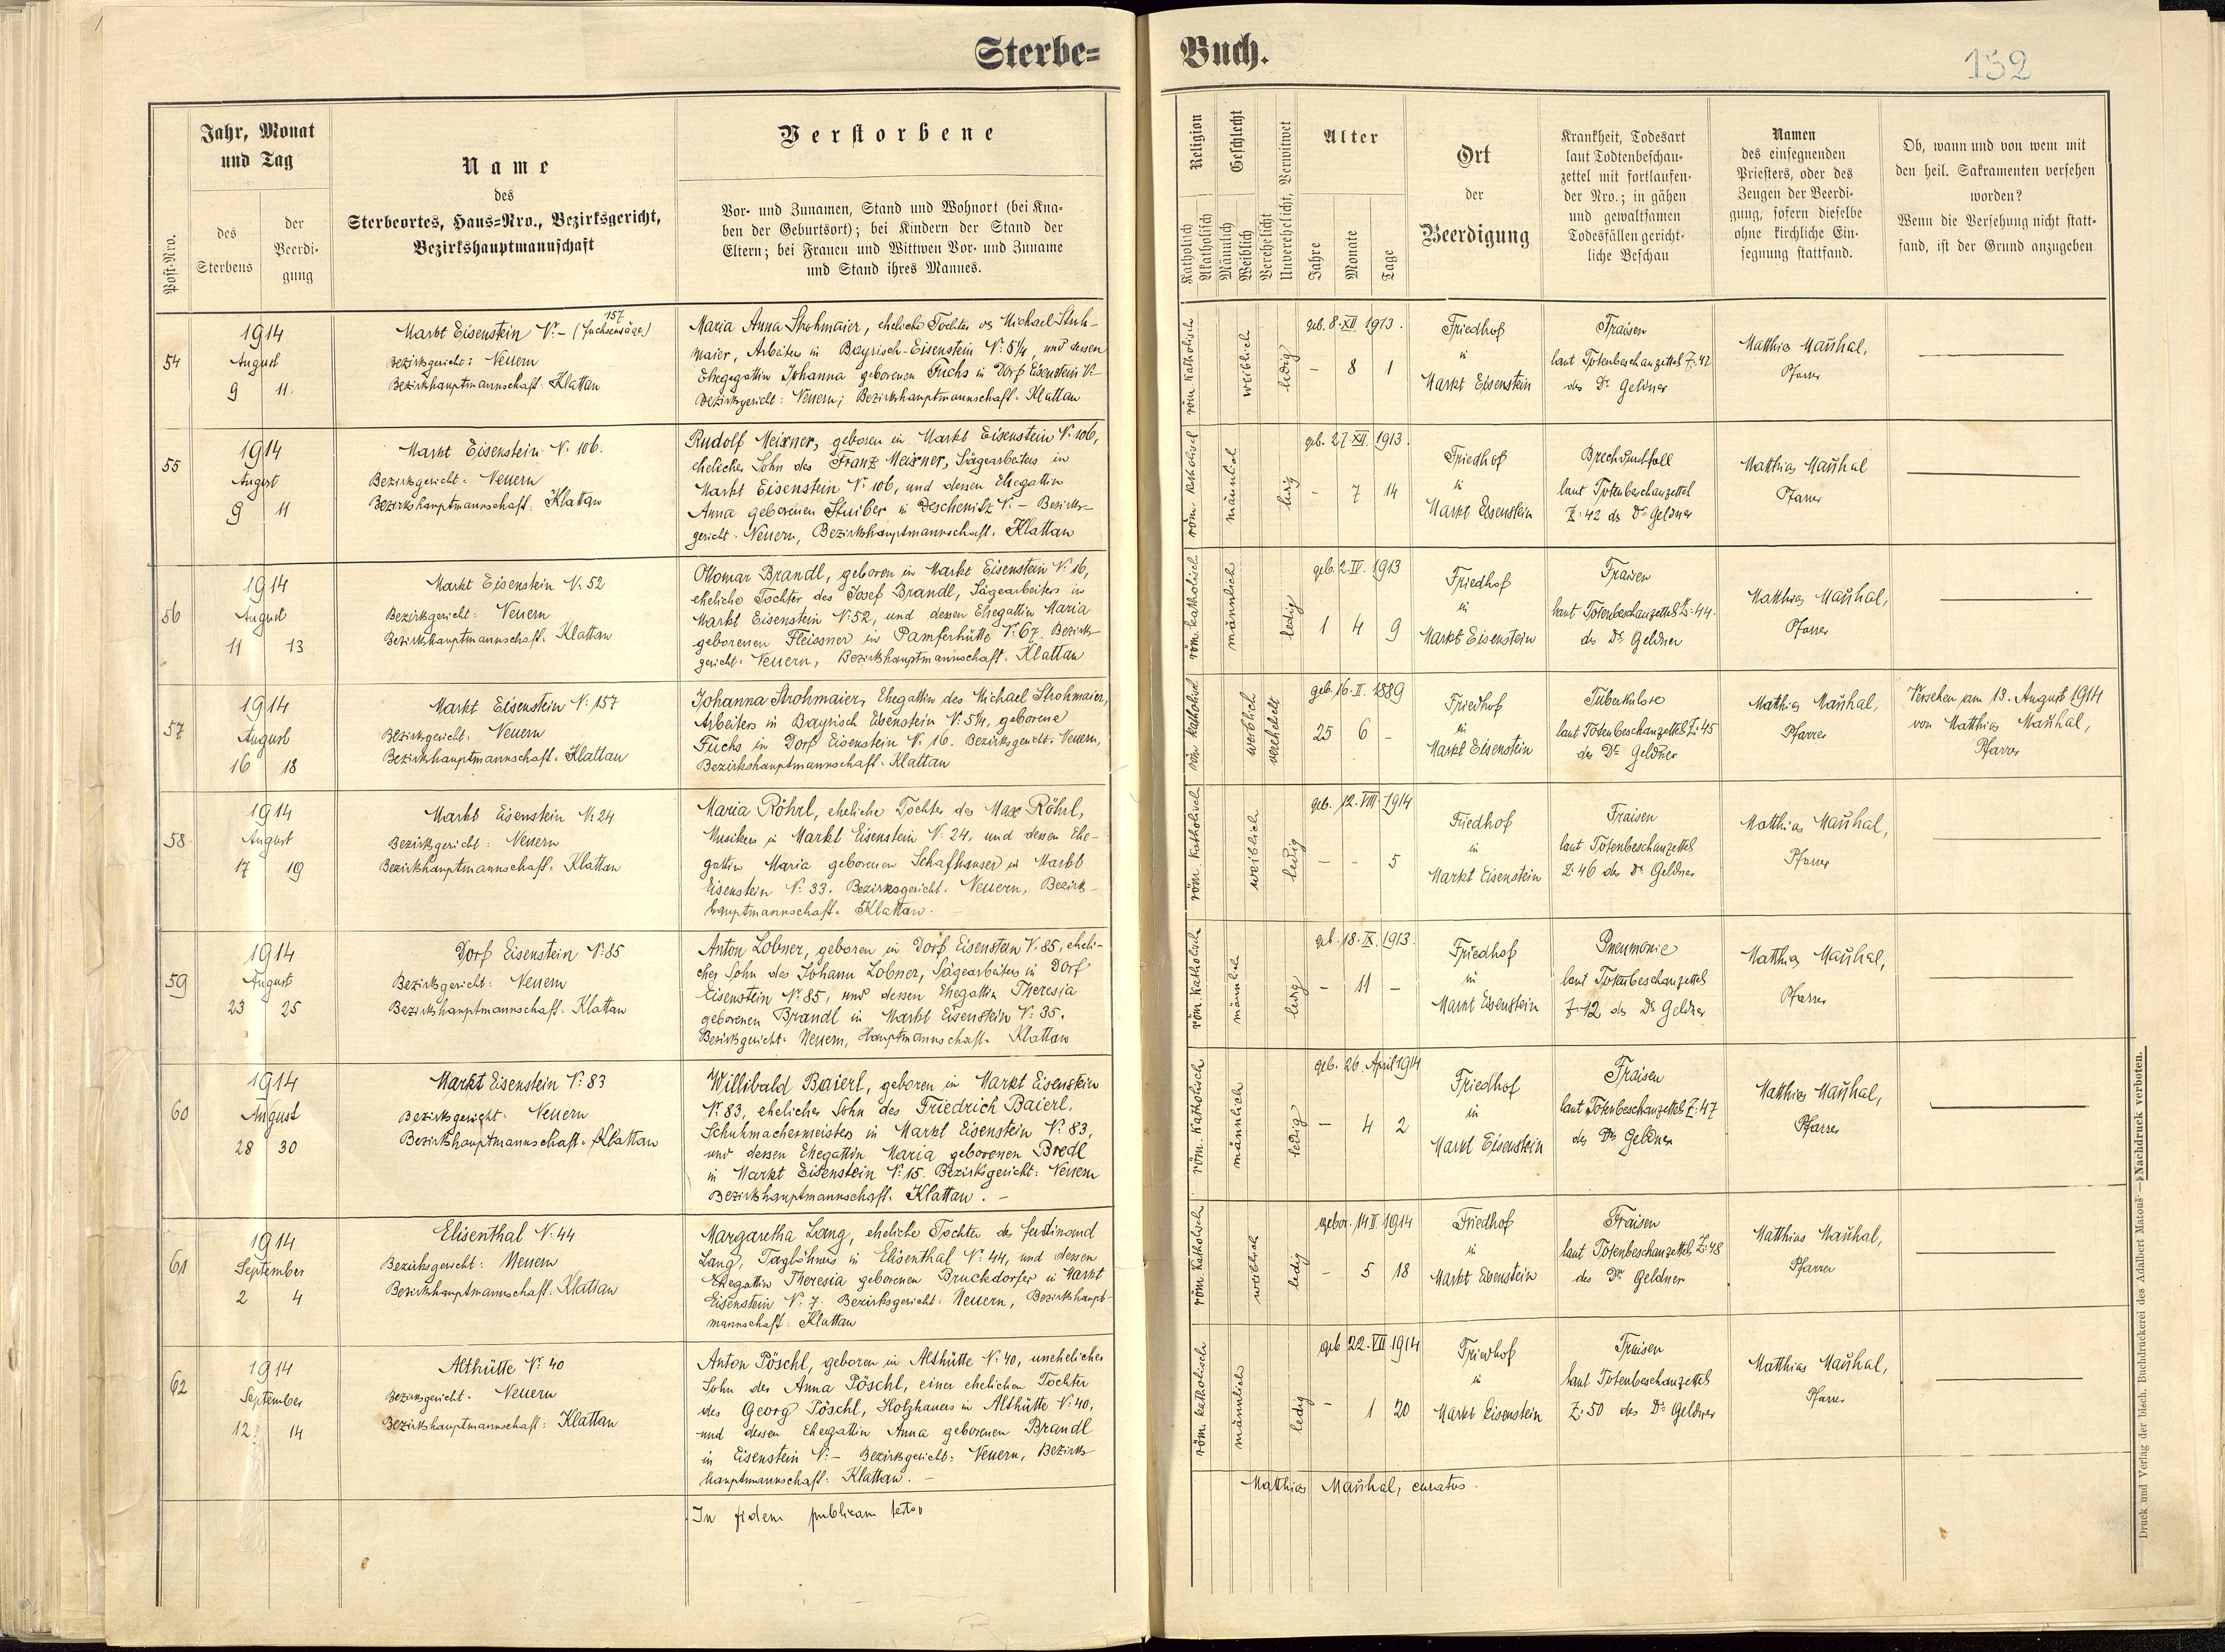 Sterbe= Buch.
152
Post-Nro.
Jahr, Monat
und Tag
des
Sterbens
der
Beerdi-
gung
Name
des
Sterbeortes, Haus=Nro., Bezirksgericht,
Bezirkshauptmannschaft
Verstorbene
Vor- und Zunamen, Stand und Wohnort (bei Kna-
ben der Geburtsort); bei Kindern der Stand der
Eltern; bei Frauen und Wittwen Vor- und Zuname
und Stand ihres Mannes.
Religion
Katholisch
Akatholisch
Geschlecht
Männlich
Weiblich
Verehelicht
Unverehelicht, Verwitwet
Alter
Jahre
Monate
Tage
Ort
der
Beerdigung
Krankheit, Todesart
laut Todtenbeschau-
zettel mit fortlaufen-
der Nro.; in gähen
und gewaltsamen
Todesfällen gericht-
liche Beschau
Namen
des einsegnenden
Priesters, oder des
Zeugen der Beerdi-
gung, sofern dieselbe
ohne kirchliche Ein-
segnung stattfand.
Ob, wann und von wem mit
den heil. Sakramenten versehen
worden?
Wenn die Versehung nicht statt-
fand, ist der Grund anzugeben
54
1914
August
9 11.
157
Markt Eisenstein N:- (Fuchsensäge)
Bezirksgericht: Neuern
Bezirkshauptmannschaft: Klattau
Maria Anna Strohmaier, eheliche Tochter des Michael Stroh-
maier, Arbeiters in Bayrisch-Eisenstein N: 51/4, und dessen
Ehegattin Johanna geborenen Fuchs in Dorf Eisenstein N:-
Bezirksgericht: Neuern; Bezirkshauptmannschaft: Klattau
röm. katholisch
weiblich
ledig
geb. 8. XII. 1913.
- 8 1
Friedhof
in
Markt Eisenstein
Fraisen
laut Totenbeschauzettel Z: 42
des Dr. Geldner
Matthias Mauhal,
Pfarrer
55
1914
August
9 11
Markt Eisenstein N: 106.
Bezirksgericht: Neuern
Bezirkshauptmannschaft: Klattau
Rudolf Meixner, geboren in Markt Eisenstein N: 106,
ehelicher Sohn des Franz Meixner, Sägearbeiters in
Markt Eisenstein N: 106, und dessen Ehegattin
Anna geborenen Stuiber in Deschenitz N: - Bezirks-
gericht: Neuern, Bezirkshauptmannschaft: Klattau
röm. katholisch
männlich
ledig
geb. 27. XII. 1913.
- 7 14
Friedhof
in
Markt Eisenstein
Brechdurchfall
laut Totenbeschauzettel
Z: 42 des Dr. Geldner
Matthias Mauhal
Pfarrer
56
1914
August
11 13
Markt Eisenstein N: 52
Bezirksgericht: Neuern
Bezirkshauptmannschaft: Klattau
Ottomar Brandl, geboren in Markt Eisenstein N: 16,
eheliche Tochter des Josef Brandl, Sägearbeiters in
Markt Eisenstein N: 52, und dessen Ehegattin Maria
geborenen Fleissner in Pamferhütte N: 67. Bezirks-
gericht: Neuern, Bezirkshauptmannschaft: Klattau
röm. katholisch
männlich
ledig
geb. 2. IV. 1913
1 4 9
Friedhof
in
Markt Eisenstein
Fraisen
laut Totenbeschauzettel Z: 44.
des Dr. Geldner
Matthias Mauhal,
Pfarrer
57
1914
August
16 18
Markt Eisenstein N: 157
Bezirksgericht: Neuern
Bezirkshauptmannschaft: Klattau
Johanna Strohmaier, Ehegattin des Michael Strohmaier,
Arbeiters in Bayrisch Eisenstein N: 51/4, geborene
Fuchs in Dorf Eisenstein N: 16. Bezirksgericht: Neuern,
Bezirkshauptmannschaft: Klattau
röm. katholisch
weiblich
verehelicht
geb. 16. II. 1889
25 6 -
Friedhof
in
Markt Eisenstein
Tuberkulose
laut Totenbeschauzettel Z: 45
des Dr. Geldner
Matthias Mauhal,
Pfarrer
Versehen am 13. August 1914
von Matthias Mauhal,
Pfarrer
58
1914
August
17 19
Markt Eisenstein N: 24
Bezirksgericht: Neuern
Bezirkshauptmannschaft: Klattau
Maria Röhrl, eheliche Tochter des Max Röhrl,
Musikers in Markt Eisenstein N: 24, und dessen Ehe-
gattin Maria geborenen Schafhauser in Markt
Eisenstein N: 33. Bezirksgericht: Neuern, Bezirks-
hauptmannschaft: Klattau.
röm. katholisch
weiblich
ledig
geb. 12. VIII. 1914
- - 5
Friedhof
in
Markt Eisenstein
Fraisen
laut Totenbeschauzettel
Z: 46 des Dr. Geldner
Matthias Mauhal,
Pfarrer
59
1914
August
23 25
Dorf Eisenstein N: 85
Bezirksgericht: Neuern
Bezirkshauptmannschaft: Klattau
Anton Lobner, geboren in Dorf Eisenstein N: 85, eheli-
cher Sohn des Johann Lobner, Sägearbeiters in Dorf
Eisenstein N: 85, und dessen Ehegattin Theresia
geborenen Brandl in Markt Eisenstein N: 35.
Bezirksgericht: Neuern, Hauptmannschaft: Klattau
röm. katholisch
männlich
ledig
geb. 18. IX. 1913.
- 11 -
Friedhof
in
Markt Eisenstein
Pneumonie
laut Totenbeschauzettel
Z: 12 des Dr. Geldner
Matthias Mauhal,
Pfarrer
60
1914
August
28 30
Markt Eisenstein N: 83
Bezirksgericht: Neuern
Bezirkshauptmannschaft: Klattau
Willibald Baierl, geboren in Markt Eisenstein
N: 83, ehelicher Sohn des Friedrich Baierl,
Schuhmachermeisters in Markt Eisenstein N: 83,
und dessen Ehegattin Maria geborenen Bredl
in Markt Eisenstein N: 15. Bezirksgericht: Neuern
Bezirkshauptmannschaft: Klattau. -
röm. katholisch
männlich
ledig
geb. 26. April 1914
- 4 2
Friedhof
in
Markt Eisenstein
Fraisen
laut Totenbeschauzettel Z: 47
des Dr. Geldner
Matthias Mauhal,
Pfarrer
61
1914
September
2 4
Elisenthal N: 44
Bezirksgericht: Neuern
Bezirkshauptmannschaft: Klattau
Margaretha Lang, eheliche Tochter des Ferdinand
Lang, Taglöhners in Elisenthal N: 44, und dessen
Ehegattin Theresia geborenen Bruckdorfer in Markt
Eisenstein N: 7. Bezirksgericht: Neuern, Bezirkshaupt-
mannschaft: Klattau
röm. katholisch
weiblich
ledig
gebor. 14 II. 1914
- 5 18
Friedhof
in
Markt Eisenstein
Fraisen
laut Totenbeschauzettel Z: 48
des Dr. Geldner
Matthias Mauhal,
Pfarrer
62
1914
September
12 14
Althütte N: 40
Bezirksgericht: Neuern
Bezirkshauptmannschaft: Klattau
Anton Pöschl, geboren in Althütte N: 40, unehelicher
Sohn der Anna Pöschl, einer ehelichen Tochter
des Georg Pöschl, Holzhauers in Althütte N: 40,
und dessen Ehegattin Anna geborenen Brandl
in Eisenstein N: - Bezirksgericht: Neuern, Bezirks-
hauptmannschaft: Klattau. -
röm. katholisch
männlich
ledig
geb. 22. VII. 1914
- 1 20
Friedhof
in
Markt Eisenstein
Fraisen
laut Totenbeschauzettel
Z: 50 des Dr. Geldner
Matthias Mauhal,
Pfarrer
In fidem publicam testor
Matthias Mauhal, curatus.
Druck und Verlag der bisch. Buchdruckerei des Adalbert Matouš — Nachdruck verboten.